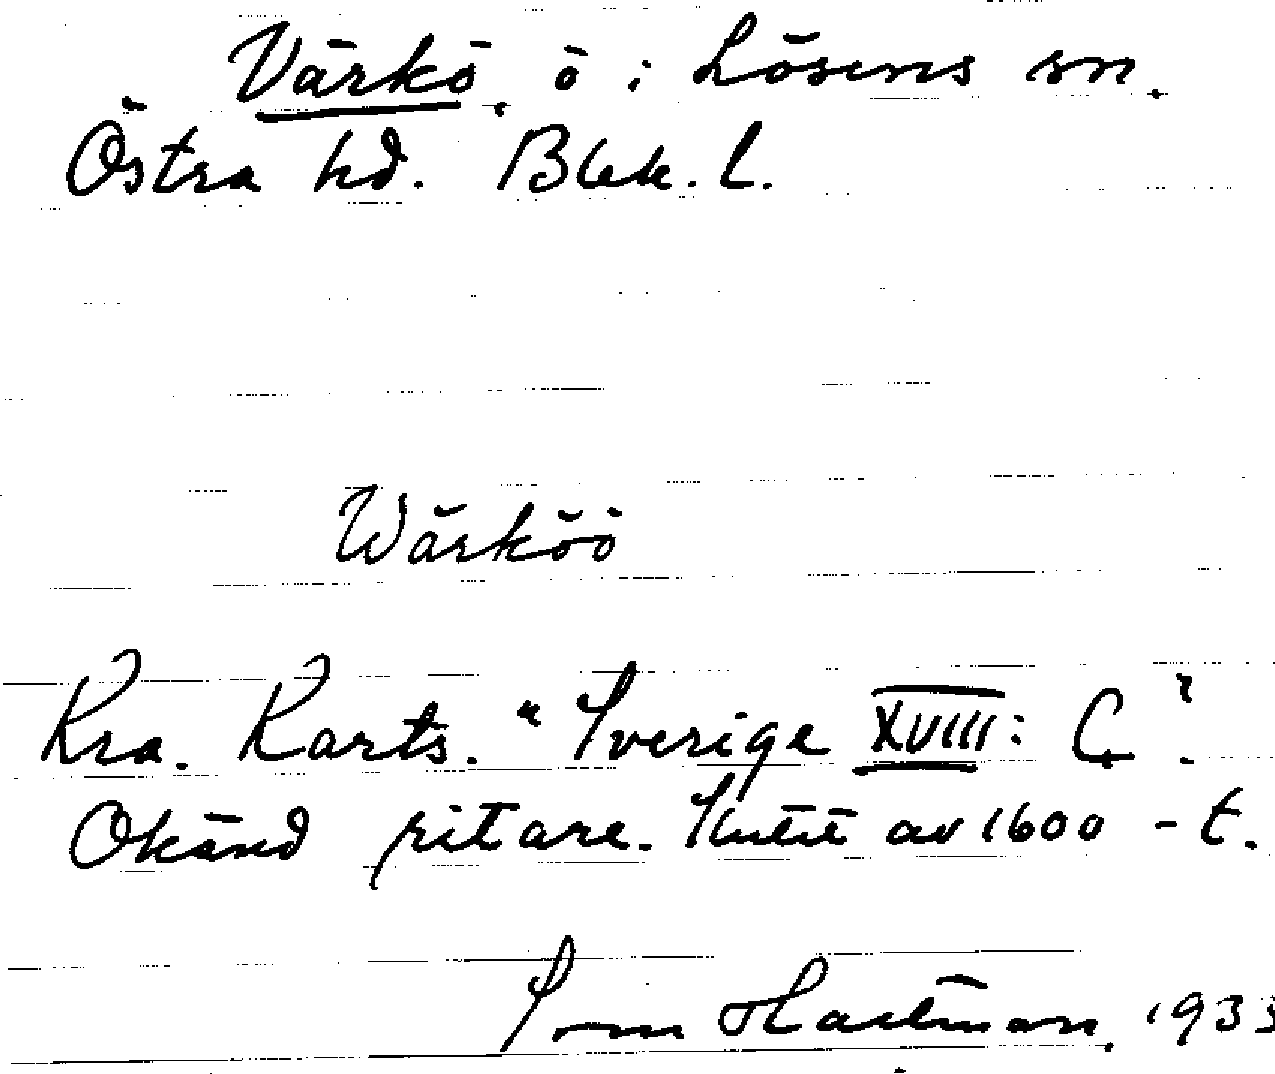 Värkö, ö i Lösens sn.
Östra hd. Blek. l.
Wärköö
Kra. Karts. "Sverige XVIII: C".
Okänd ritare. Slutet av 1600-t.
Hartman 193